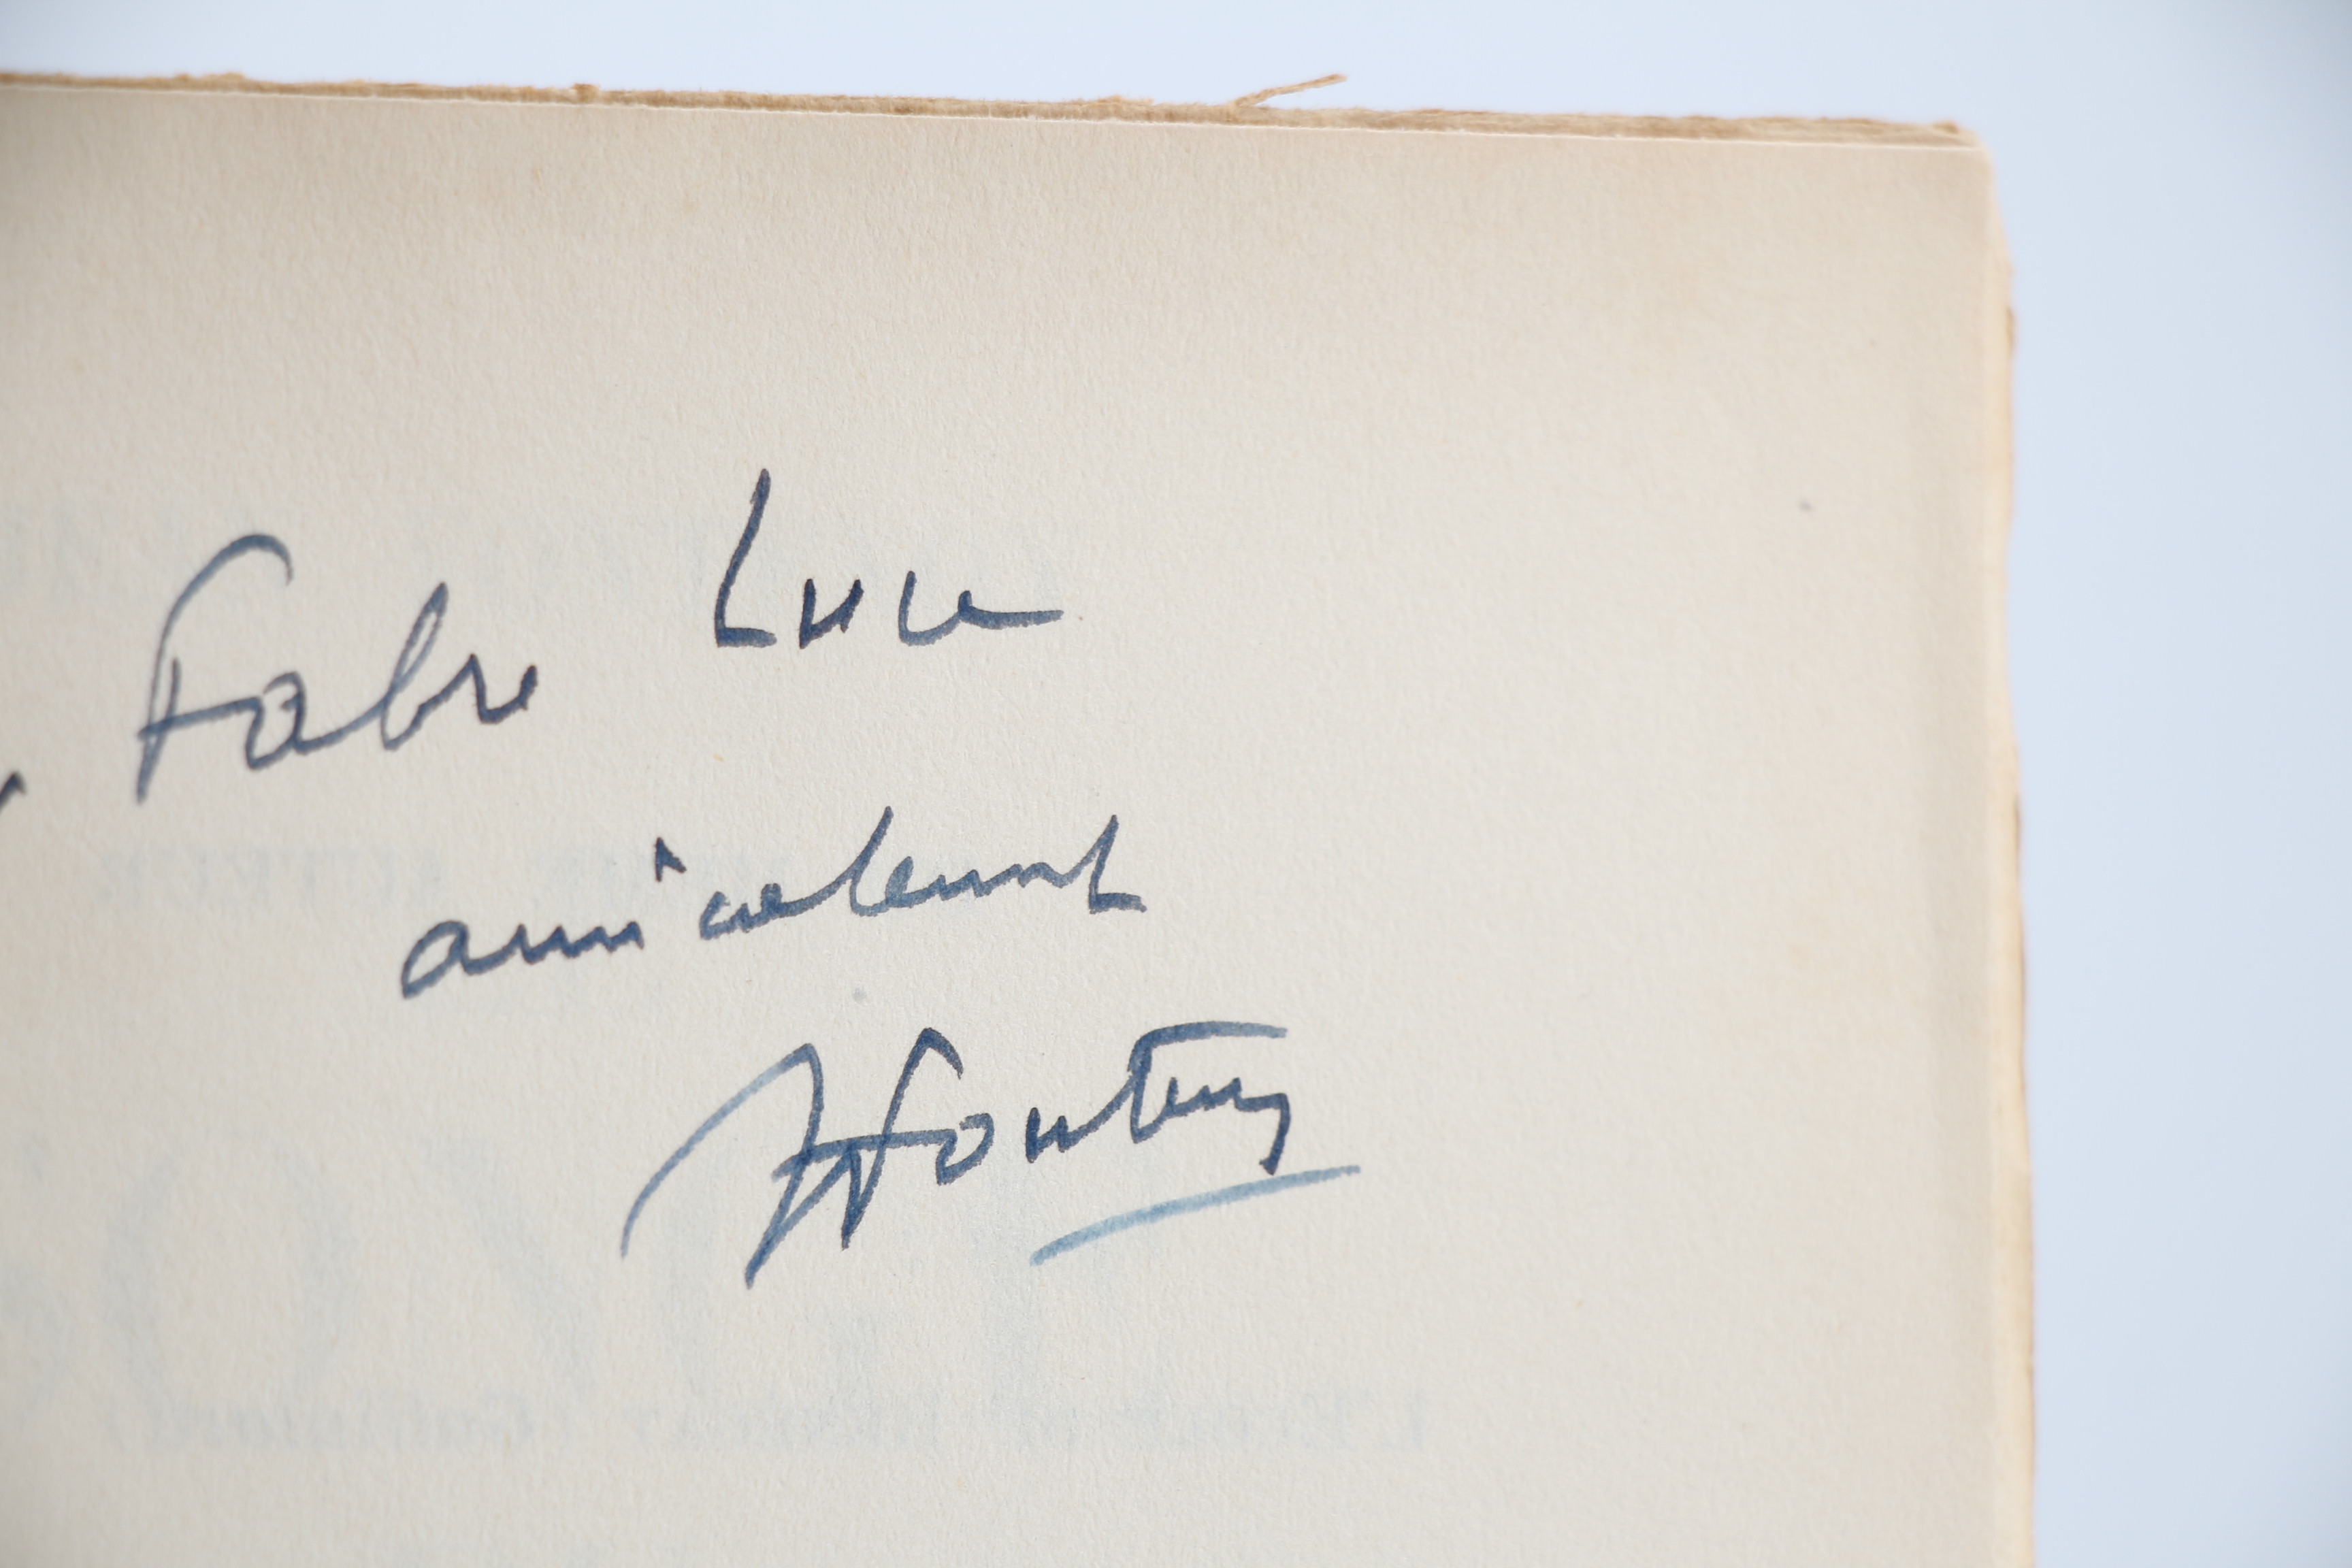 Fabre Luce
amicalement
JFontenoy